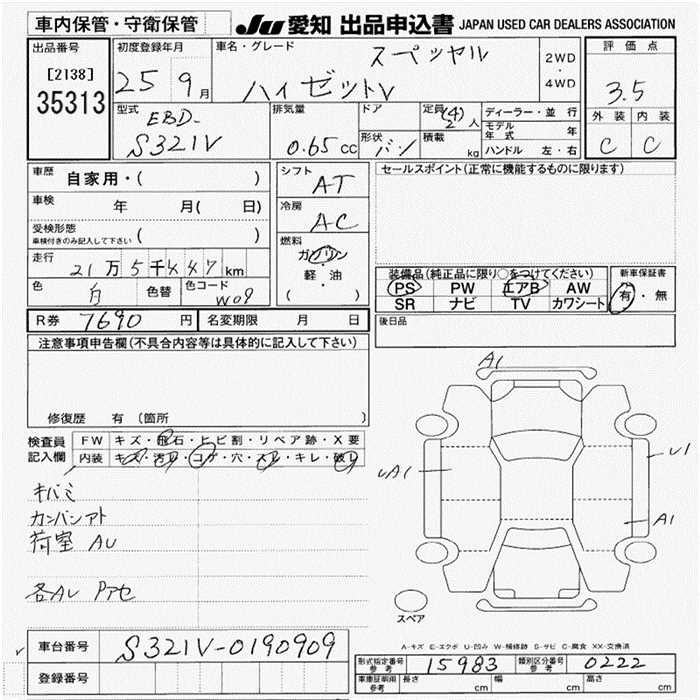 車内保管・守衛保管
JU 愛知 出品申込書 JAPAN USED CAR DEALERS ASSOCIATION
出品番号
[2138]
35313
初度登録年月
25 9月
車名・グレード
スペッヤル
ハイゼットV
2WD
・
4WD
評価点
3.5
外装 内装
C C
型式
EBD-
S321V
排気量
0.65 cc
ドア
形状
バン
定員 (4)
2 人
積載
kg
ディーラー・並行
モデル年式 年
ハンドル 左・右
車歴 自家用・( )
車検 年 月( 日)
受検形態
車検付きのみ記入して下さい ( )
走行 21万5千447km
色 白 色替 色コード W09
シフト
AT
冷房
AC
燃料
ガソリン
・
軽・油
( )
セールスポイント(正常に機能するものに限ります)
装備品(純正品に限り○をつけてください)
PS PW エアB AW
SR ナビ TV カワシート
新車保証書
有・無
R券 7690 円 名変期限 月 日
後日品
注意事項申告欄(不具合内容等は具体的に記入して下さい)
修復歴 有 (箇所 )
検査員
記入欄
FW キズ・飛石・ヒビ割・リペア跡・X要
内装 キズ・汚レ・コゲ・穴・スレ・キレ・破レ
キバミ
カンバンアト
荷室 AU
各AU Pアセ
A1
UA1
U1
A1
スペア
A-キズ E-エクボ U-凹み W-補修跡 S-サビ C-腐食 XX-交換済
車台番号 S321V-0190909
登録番号
型式指定番号
参考
15983
類別区分番号
参考
0222
車庫証明用
参考
長さ cm 幅 cm 高さ cm